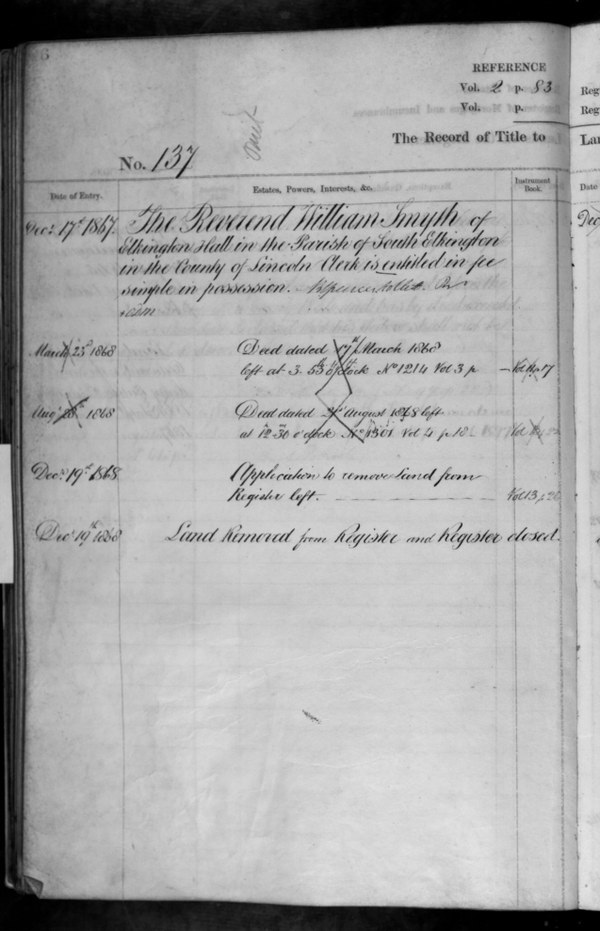 6
REFERENCE
Vol. 2 p. 83
Vol. p.
The Record of Title to
No. 137
Date of Entry.
Estates, Powers, Interests, &c.
Instrument Book.
Decr. 17th 1867. The Reverend William Smyth of
Elkington Hall in the Parish of South Elkington
in the County of Lincoln Clerk is entitled in fee
simple in possession.
March 23d 1868 Deed dated 17th March 1868
left at 3. 53 o'clock No 1214 Vol 3 p — Vol 11 p 17
Augt 28th 1868 Deed dated August 1868 left
at 12 30 o'clock No 1501 Vol 4 p 18
Decr. 19th 1868 Application to remove Land from
Register left. Vol 13 p 26
Decr 19th 1868 Land Removed from Register and Register closed.
Reg
Reg
Lan
Date
Dec